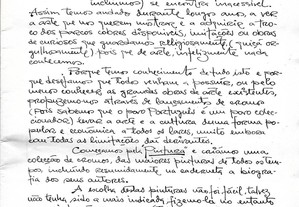 inclusivo) se encontra inacessível.
Assim temos andado, durante longos anos, a ver
a arte que nos querem mostrar e a adquirir a tro-
co dos parcos cobres disponíveis, imitações ou obras
de curiosos que guardamos religiosamente, (quiçá or-
gulhosamente) pois que de arte, infelizmente, nada
conhecemos.
Porque temos conhecimento de tudo isto e por-
que desejamos que todos venham a possuir, ou pelo
menos conhecer as grandes obras de arte existentes,
propuzemo-nos através do lançamento de cromos
(pois sabemos que o povo Português é um povo colec-
cionador) levar a arte e a cultura duma forma po-
pular e económica a todos os lares, muito embora
com todas as limitações daí derivantes.
Começamos pela Pintura e criámos uma
colecção de cromos, das maiores pinturas de todos os tem-
pos, incluindo resumidamente na caderneta a biogra-
fia dos seus autores.
A escolha destas pinturas não foi fácil, talvez
não tenha sido a mais indicada, fizemo-la no entanto